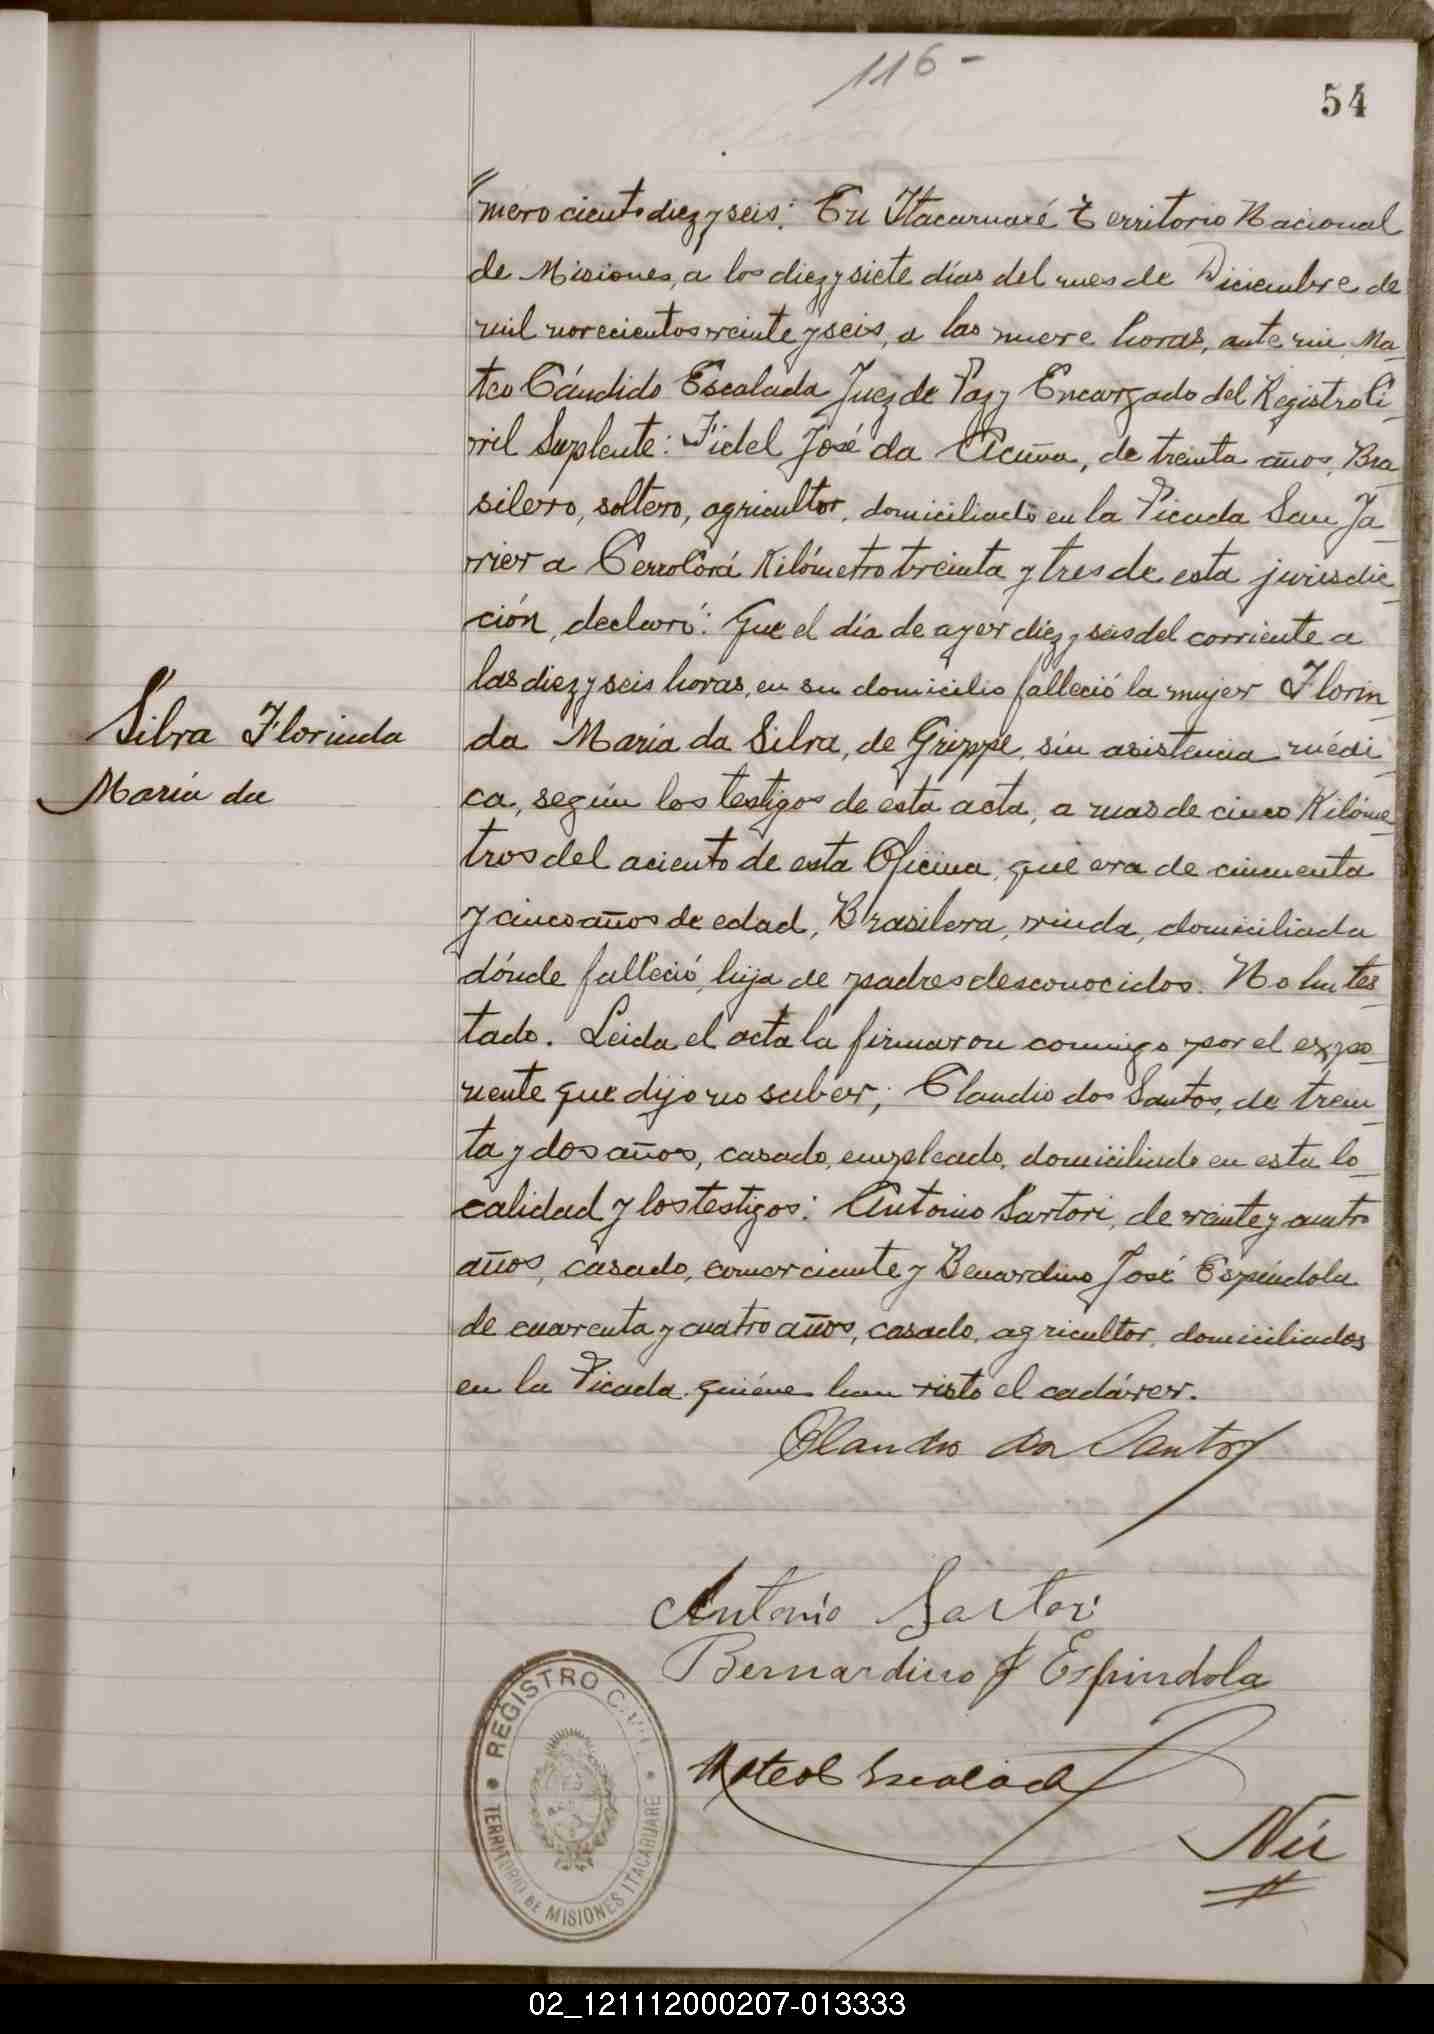 116-
54
"mero ciento diez y seis: En Itacaruaré Territorio Nacional
de Misiones, a los diez y siete días del mes de Diciembre de
mil novecientos veinte y seis, a las nueve horas, ante mi Ma-
teo Cándido Escalada Juez de Paz y Encargado del Registro Ci-
vil Suplente: Fidel José da Acuña, de treinta años, Bra-
silero, soltero, agricultor, domiciliado en la Picada San Ja-
vier a Cerro Corá Kilómetro treinta y tres de esta jurisdic-
ción, declaró: Que el día de ayer diez y seis del corriente a
las diez y seis horas, en su domicilio falleció la mujer Florin-
da María da Silva, de Grippe, sin asistencia médi-
ca, según los testigos de esta acta, a mas de cinco Kilóme-
tros del aciento de esta Oficina, que era de cincuenta
y cinco años de edad, Brasilera, viuda, domiciliada
dónde falleció, hija de padres desconocidos. No ha tes-
tado. Leida el acta la firmaron conmigo por el expo-
nente que dijo no saber; Claudio dos Santos, de trein-
ta y dos años, casado, empleado, domiciliado en esta lo-
calidad y los testigos: Antonio Sartori, de veinte y cuatro
años, casado, comerciante y Bernardino José Espíndola
de cuarenta y cuatro años, casado, agricultor, domiciliados
en la Picada quiénes han visto el cadáver.
Silva Florinda
María da
Claudio dos Santos
Antonio Sartori
Bernardino J Espindola
Mateo C Escalada
Nú
REGISTRO CIVIL
TERRITORIO DE MISIONES ITACARUARE
02_121112000207-013333